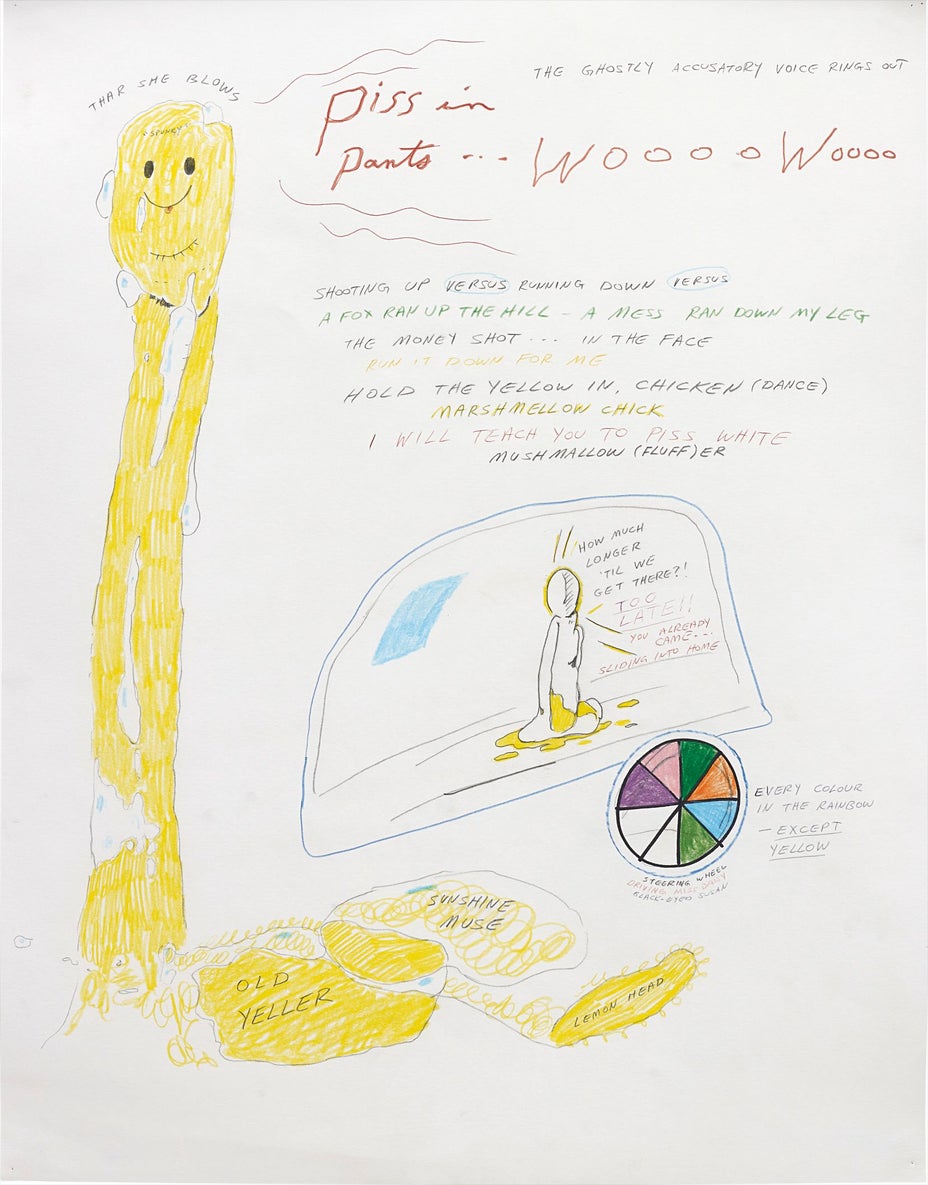 THAR SHE BLOWS
"SPUNKY"
THE GHOSTLY ACCUSATORY VOICE RINGS OUT
Piss in
pants ... WOOOO WOOOO
SHOOTING UP VERSUS RUNNING DOWN VERSUS
A FOX RAN UP THE HILL – A MESS RAN DOWN MY LEG
THE MONEY SHOT ... IN THE FACE
RUN IT DOWN FOR ME
HOLD THE YELLOW IN, CHICKEN (DANCE)
MARSHMELLOW CHICK
I WILL TEACH YOU TO PISS WHITE
MUSHMALLOW (FLUFF)ER
HOW MUCH
LONGER
'TIL WE
GET THERE?!
TOO
LATE!!
YOU ALREADY
CAME...
SLIDING INTO HOME
EVERY COLOUR
IN THE RAINBOW
– EXCEPT
YELLOW
STEERING WHEEL
DRIVING MISS DAISY
BLACK-EYED SUSAN
SUNSHINE
MUSE
OLD
YELLER
LEMON HEAD